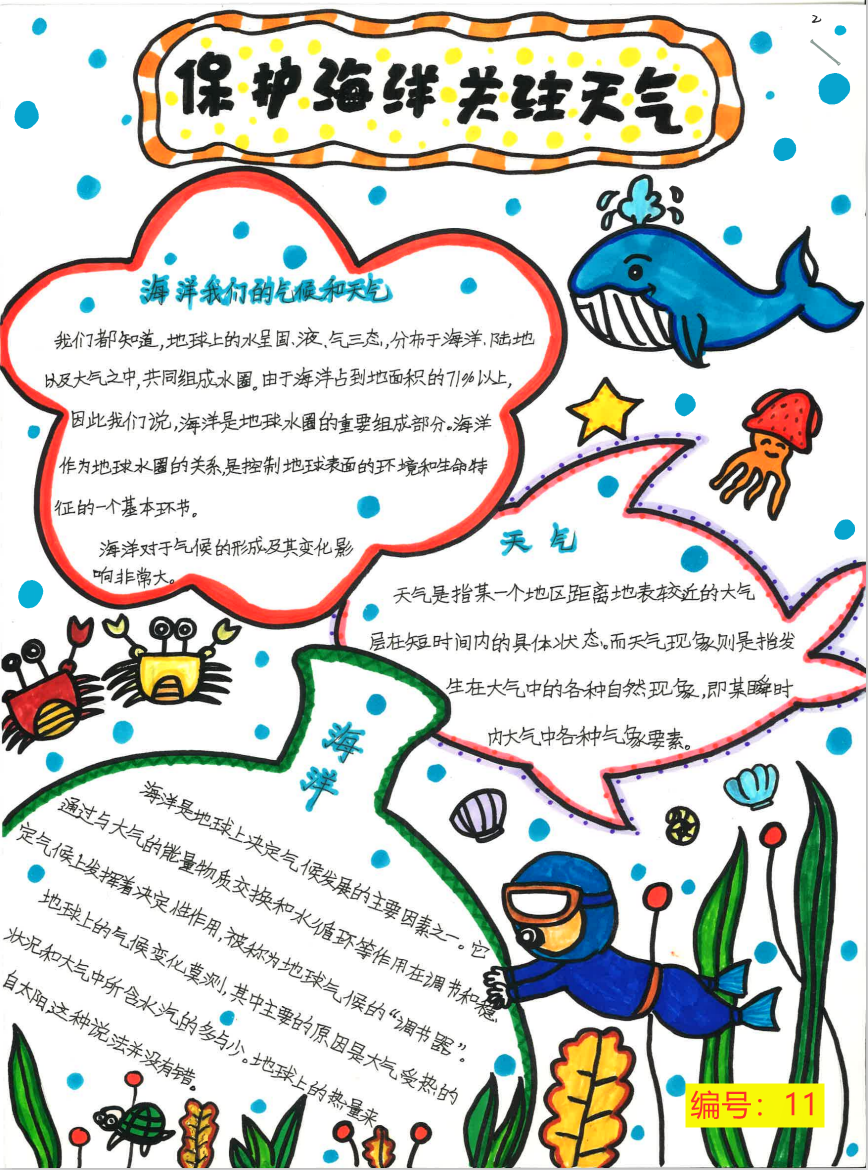 2
保护海洋关注天气
海洋我们的气候和天气
我们都知道,地球上的水呈固、液、气三态,分布于海洋、陆地
以及大气之中,共同组成水圈。由于海洋占到地面积的71%以上,
因此我们说,海洋是地球水圈的重要组成部分。海洋
作为地球水圈的关系,是控制地球表面的环境和生命特
征的一个基本环节。
海洋对于气候的形成及其变化影
响非常大。
天气
天气是指某一个地区距离地表较近的大气
层在短时间内的具体状态。而天气现象则是指发
生在大气中的各种自然现象,即某瞬时
内大气中各种气象要素。
海洋
海洋是地球上决定气候发展的主要因素之一。它
通过与大气的能量物质交换和水循环等作用在调节和稳
定气候上发挥着决定性作用,被称为地球气候的“调节器”。
地球上的气候变化莫测,其中主要的原因是大气受热的
状况和大气中所含水汽的多与少。地球上的热量来
自太阳,这种说法并没有错。
编号：11